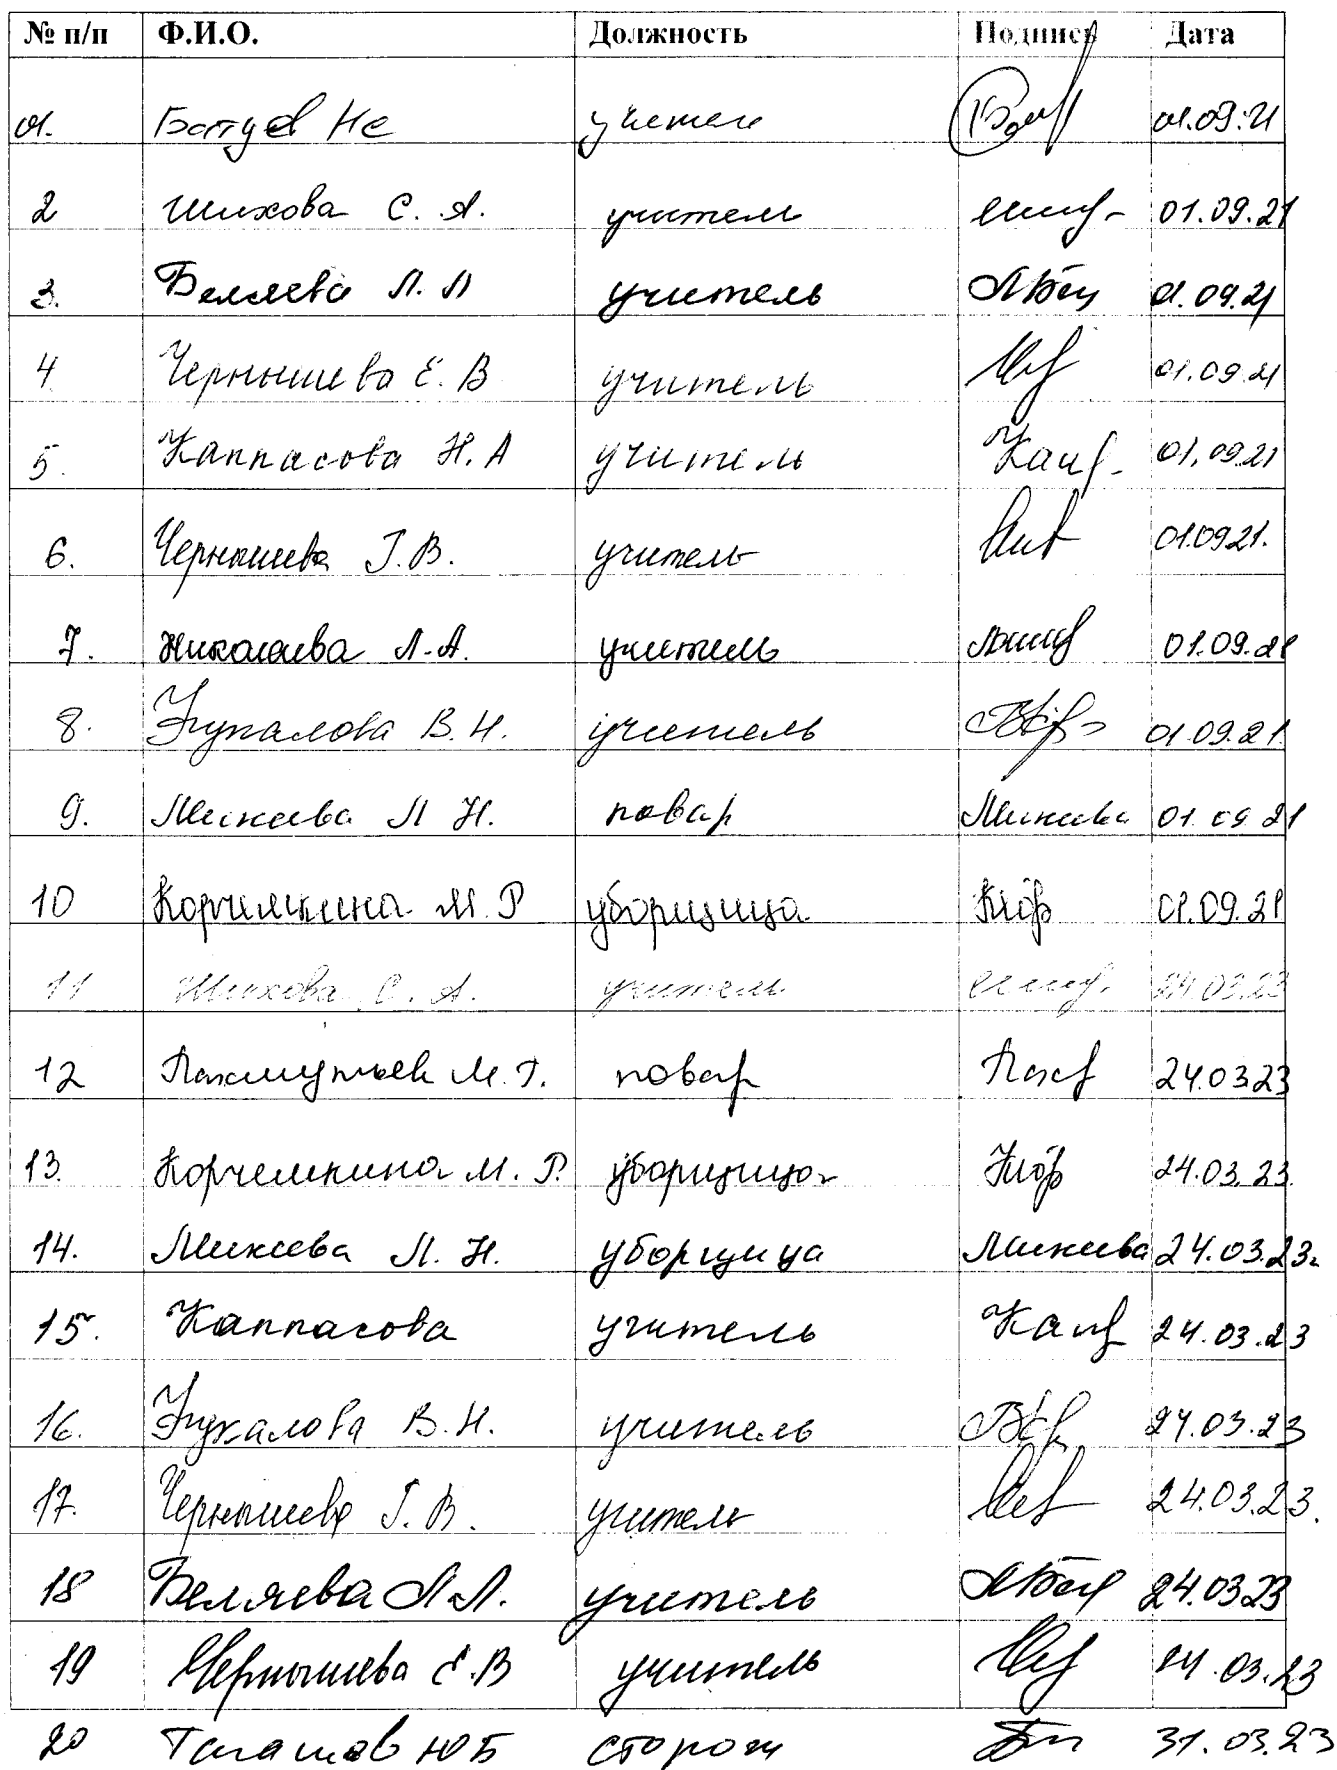 № п/п Ф.И.О. Должность Подпись Дата
01. учитель 01.09.21
2 Шихова С. А. учитель 01.09.21
3. Беляева Л. Л учитель 01.09.21
4 Чернышева Е. В учитель 01.09.21
5. Каппасова Н. А учитель 01.09.21
6. Чернышева Г. В. учитель 01.09.21.
7. Николаева Л. А. учитель 01.09.21
8. В. Н. учитель 01.09.21
9. Микеева Л Н. повар Микеева 01.09 21
10 Корчемкина М. Р уборщица Кор 01.09.21
11 Шихова С. А. учитель 24.03.23
12 М. Г. повар 24.03.23
13. Корчемкина М. Р. уборщица Кор 24.03.23.
14. Микеева Л. Н. уборщица Микеева 24.03.23г
15. Каппасова учитель 24.03.23
16. В. Н. учитель 24.03.23
17. Чернышева Г. В. учитель 24.03.23.
18 Беляева Л Л. учитель 24.03.23
19 Чернышева Е. В учитель 24.03.23
20 Ю Б сторож 31.03.23